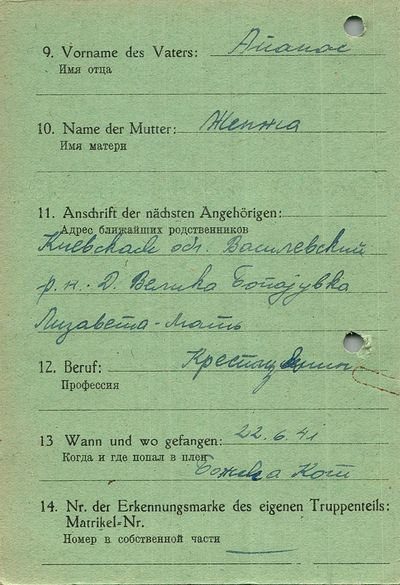 9. Vorname des Vaters: Апанас
Имя отца
10. Name der Mutter:
Имя матери
11. Anschrift der nächsten Angehörigen:
Адрес ближайших родственников
Киевская обл. Василевский
р.н. Д. Велика
Лизавета - Мать
12. Beruf:
Профессия
13 Wann und wo gefangen: 22.6.41
Когда и где попал в плен
14. Nr. der Erkennungsmarke des eigenen Truppenteils:
Matrikel-Nr.
Номер в собственной части